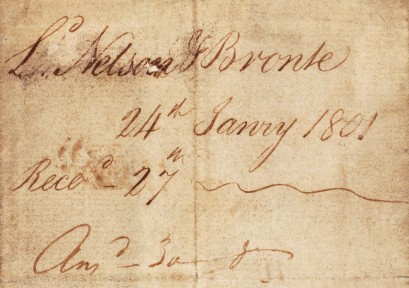 Ld. Nelson & Bronte
24th Janry 1801
Recevd. 27th
Ansd 30